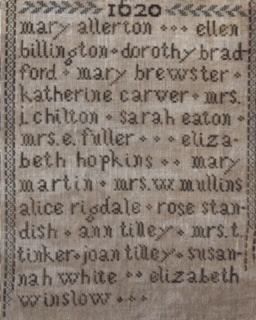 1620
mary allerton ••• ellen
billington • dorothy brad-
ford • mary brewster •
katherine carver • mrs.
j. chilton • sarah eaton •
mrs. e. fuller • • • eliza-
beth hopkins • • mary
martin • mrs. w. mullins
alice rigdale • rose stan-
dish • ann tilley • mrs. t.
tinker • joan tilley • susan-
nah white • • elizabeth
winslow • • •